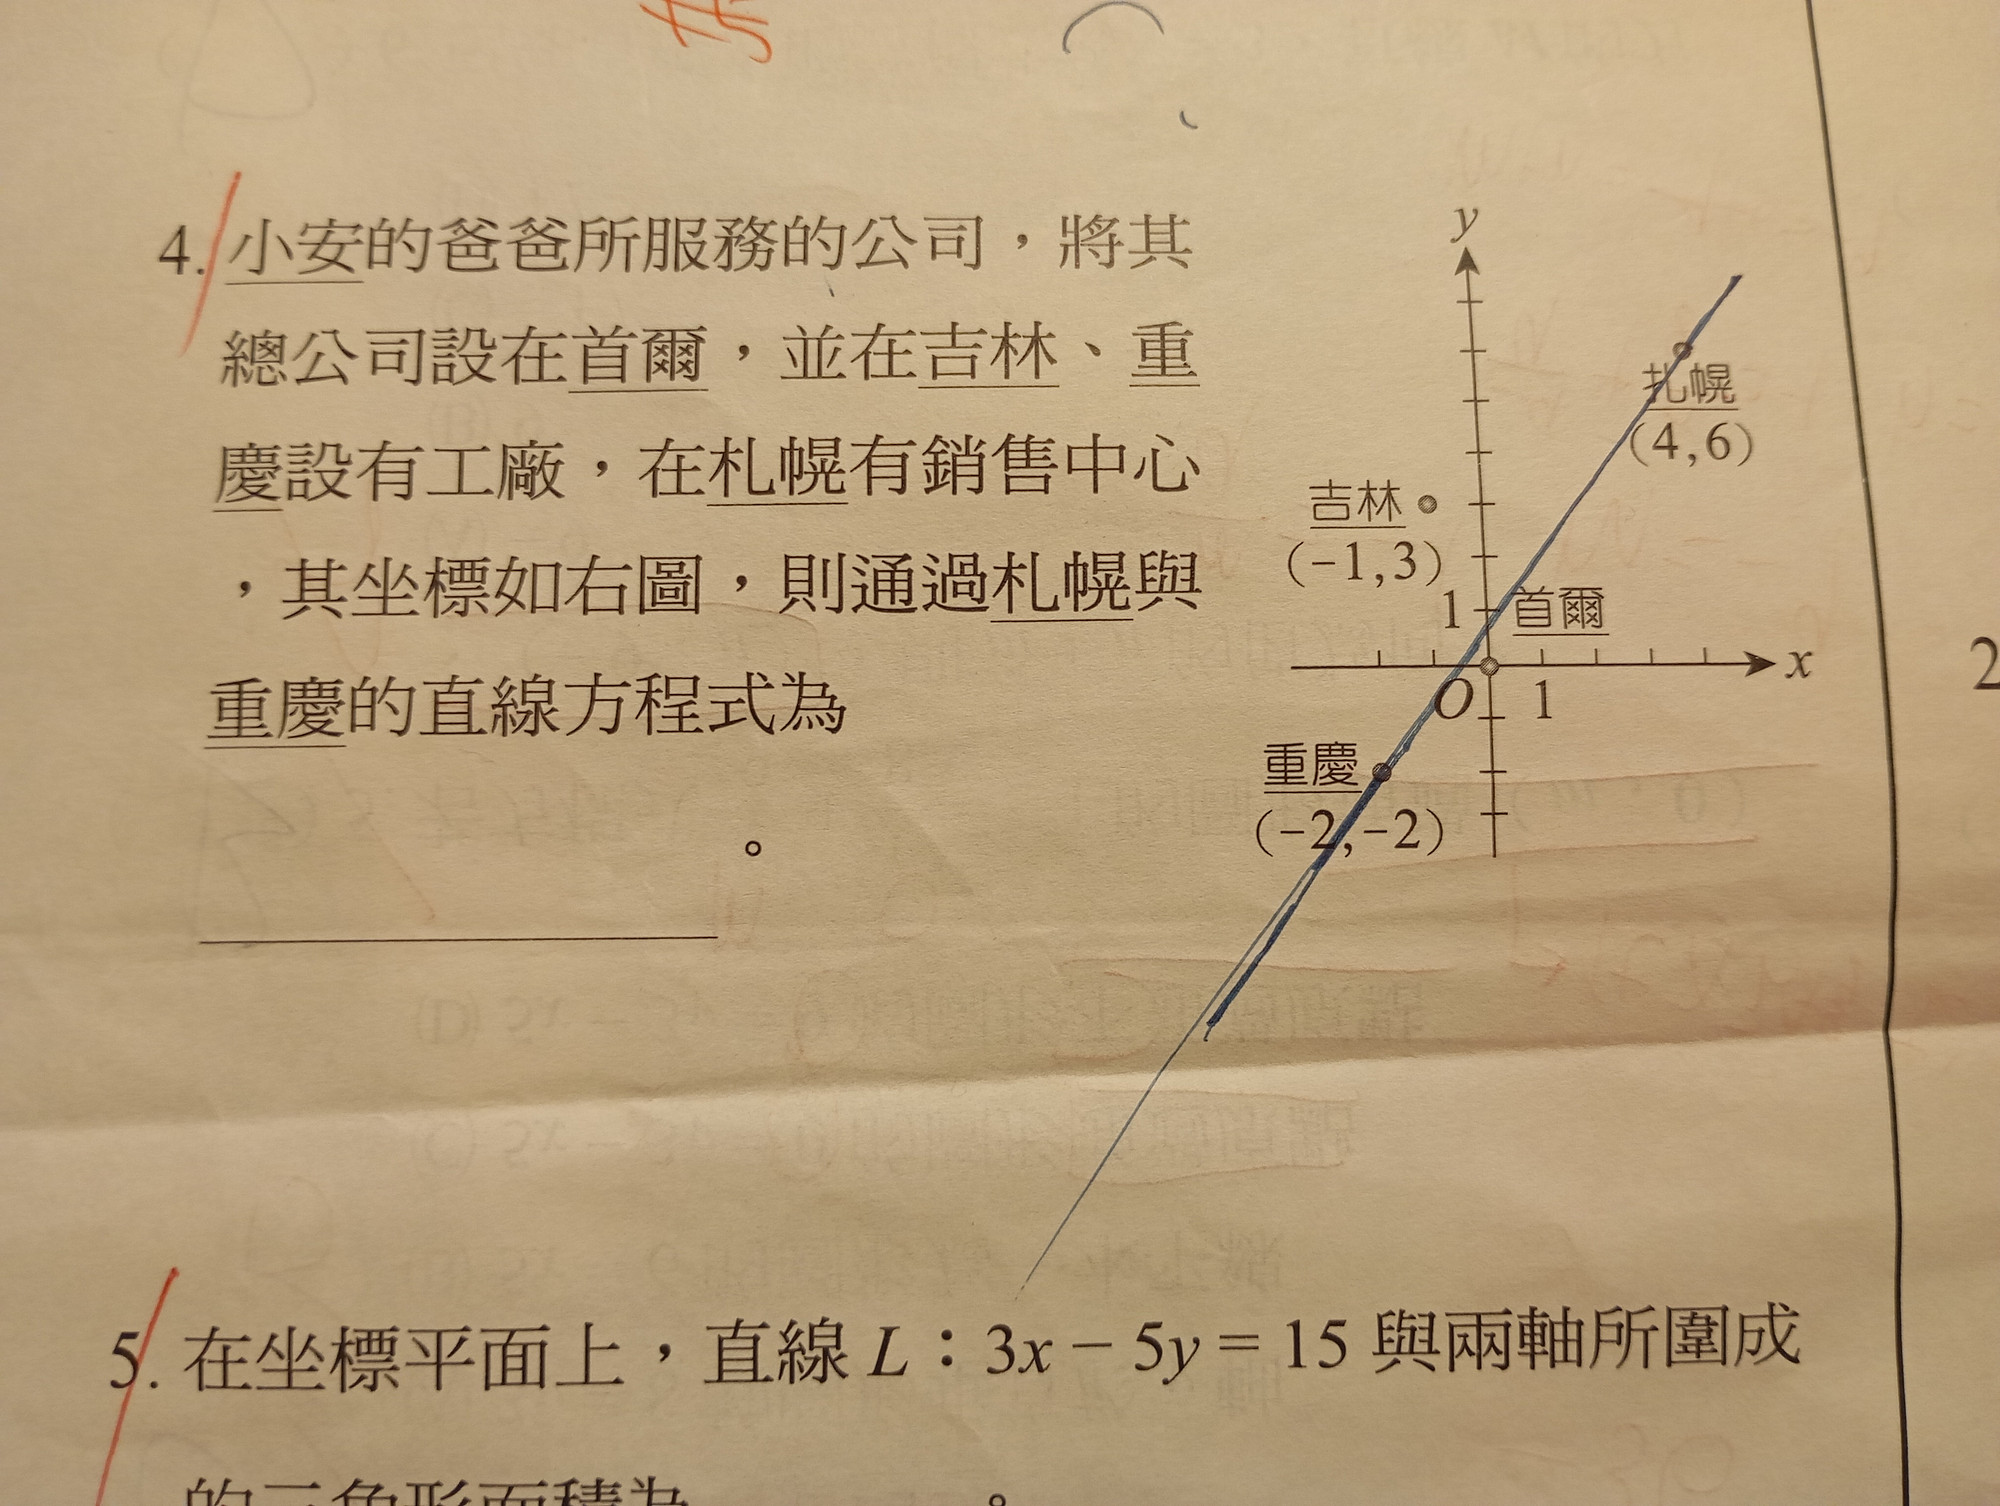 4. 小安的爸爸所服務的公司，將其
總公司設在首爾，並在吉林、重
慶設有工廠，在札幌有銷售中心
，其坐標如右圖，則通過札幌與
重慶的直線方程式為
。
y
札幌
(4,6)
吉林
(-1,3)
1
首爾
x
O
1
重慶
(-2,-2)
2
5. 在坐標平面上，直線 L：3x－5y＝15 與兩軸所圍成
的三角形面積為 。